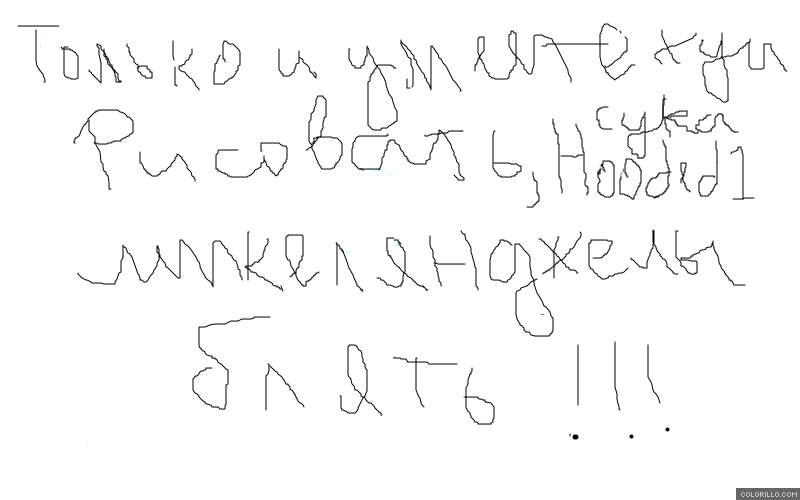 Только и умеите хуи
Рисовать, Hooded1 сука
микеленджелы
блеть!!!
COLORILLO.COM